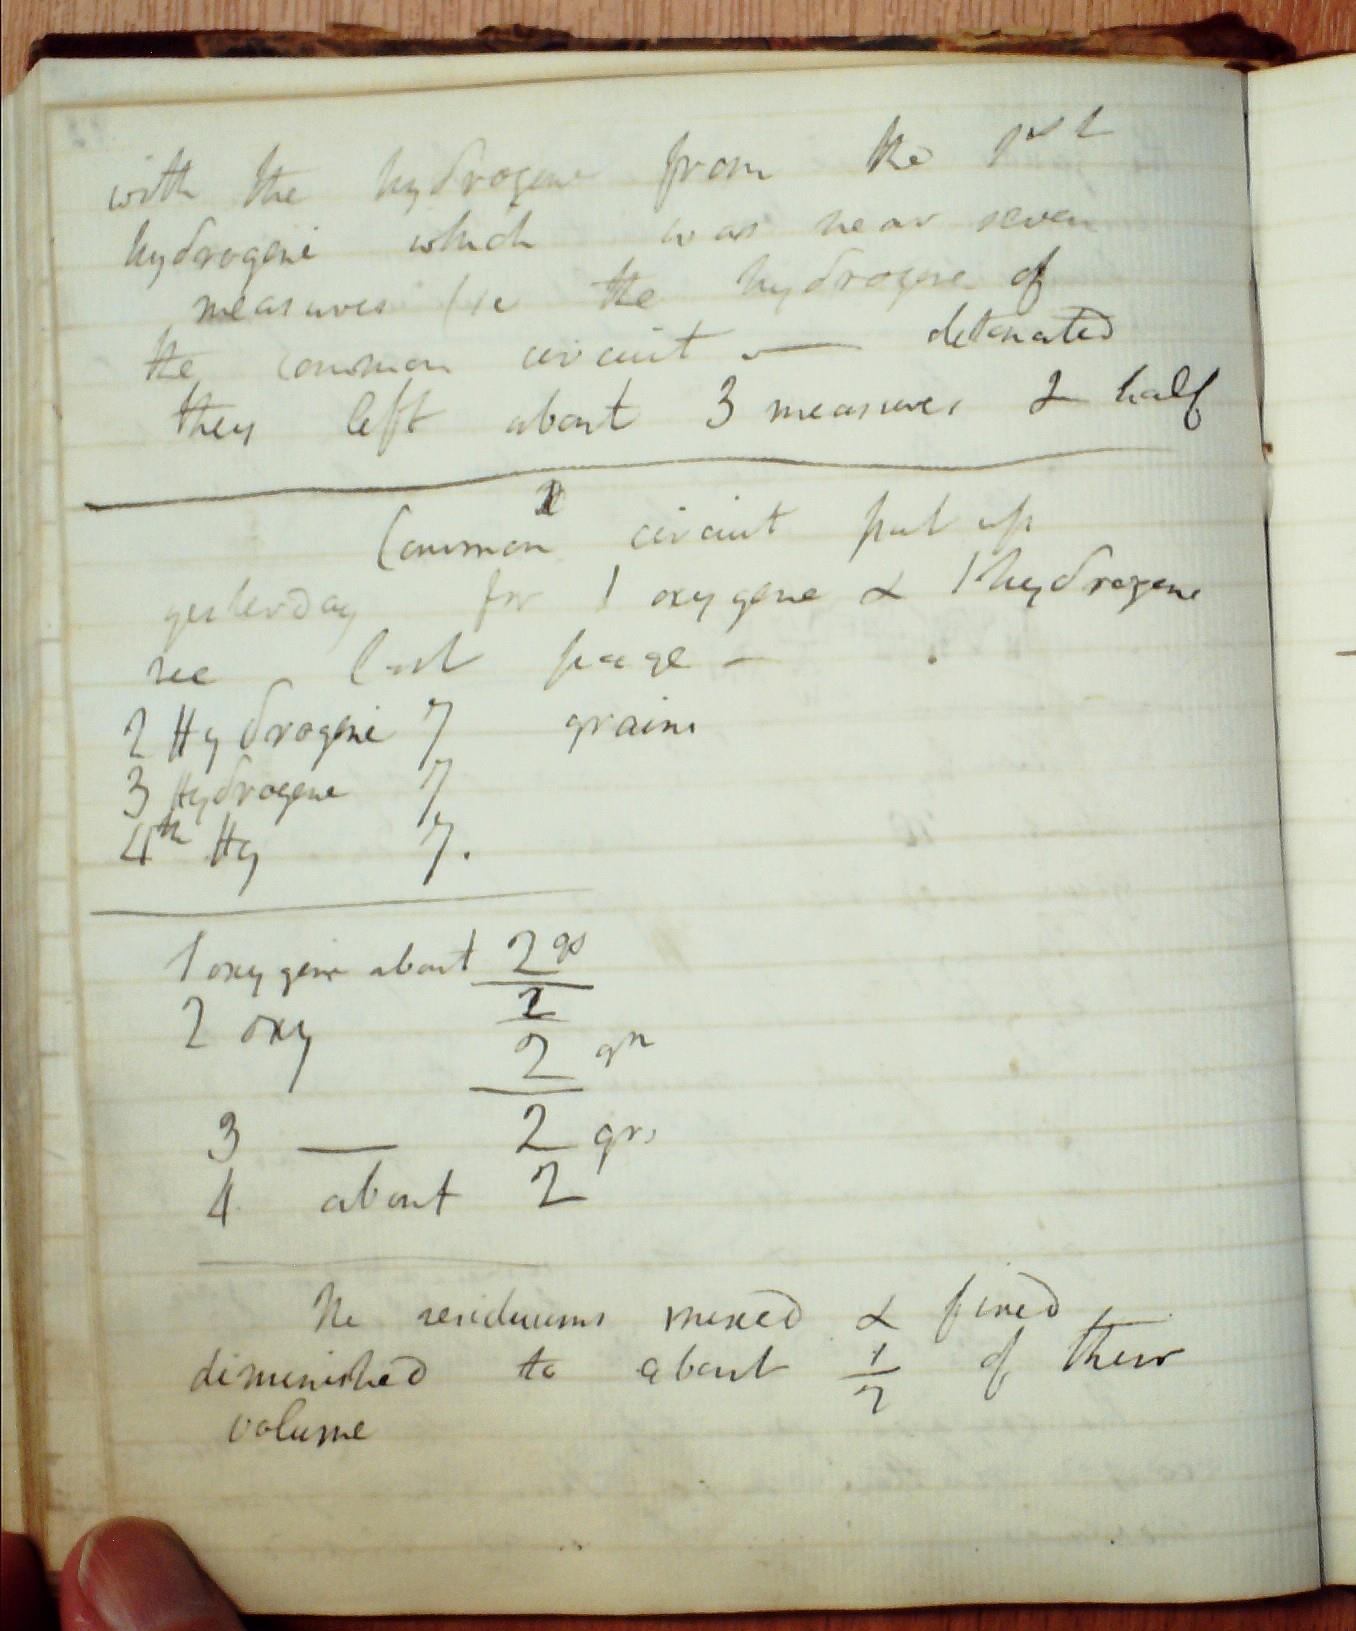 with the hydrogene from the 1st
hydrogene which was near seven
measures (ie the hydrogene of
the common circuit — detonated
they left about 3 measures & half
Common circuit put up
yesterday for 1 oxygene & 1 hydrogene
see last page —
2 Hydrogene 7 grains
3 Hydrogene 7
4th Hy 7.
1 oxygene about 2 gs
2 oxy 2
2 grs
3 — 2 grs
4 about 2
The residuums mixed & fired
diminished to about 1/7 of their
volume